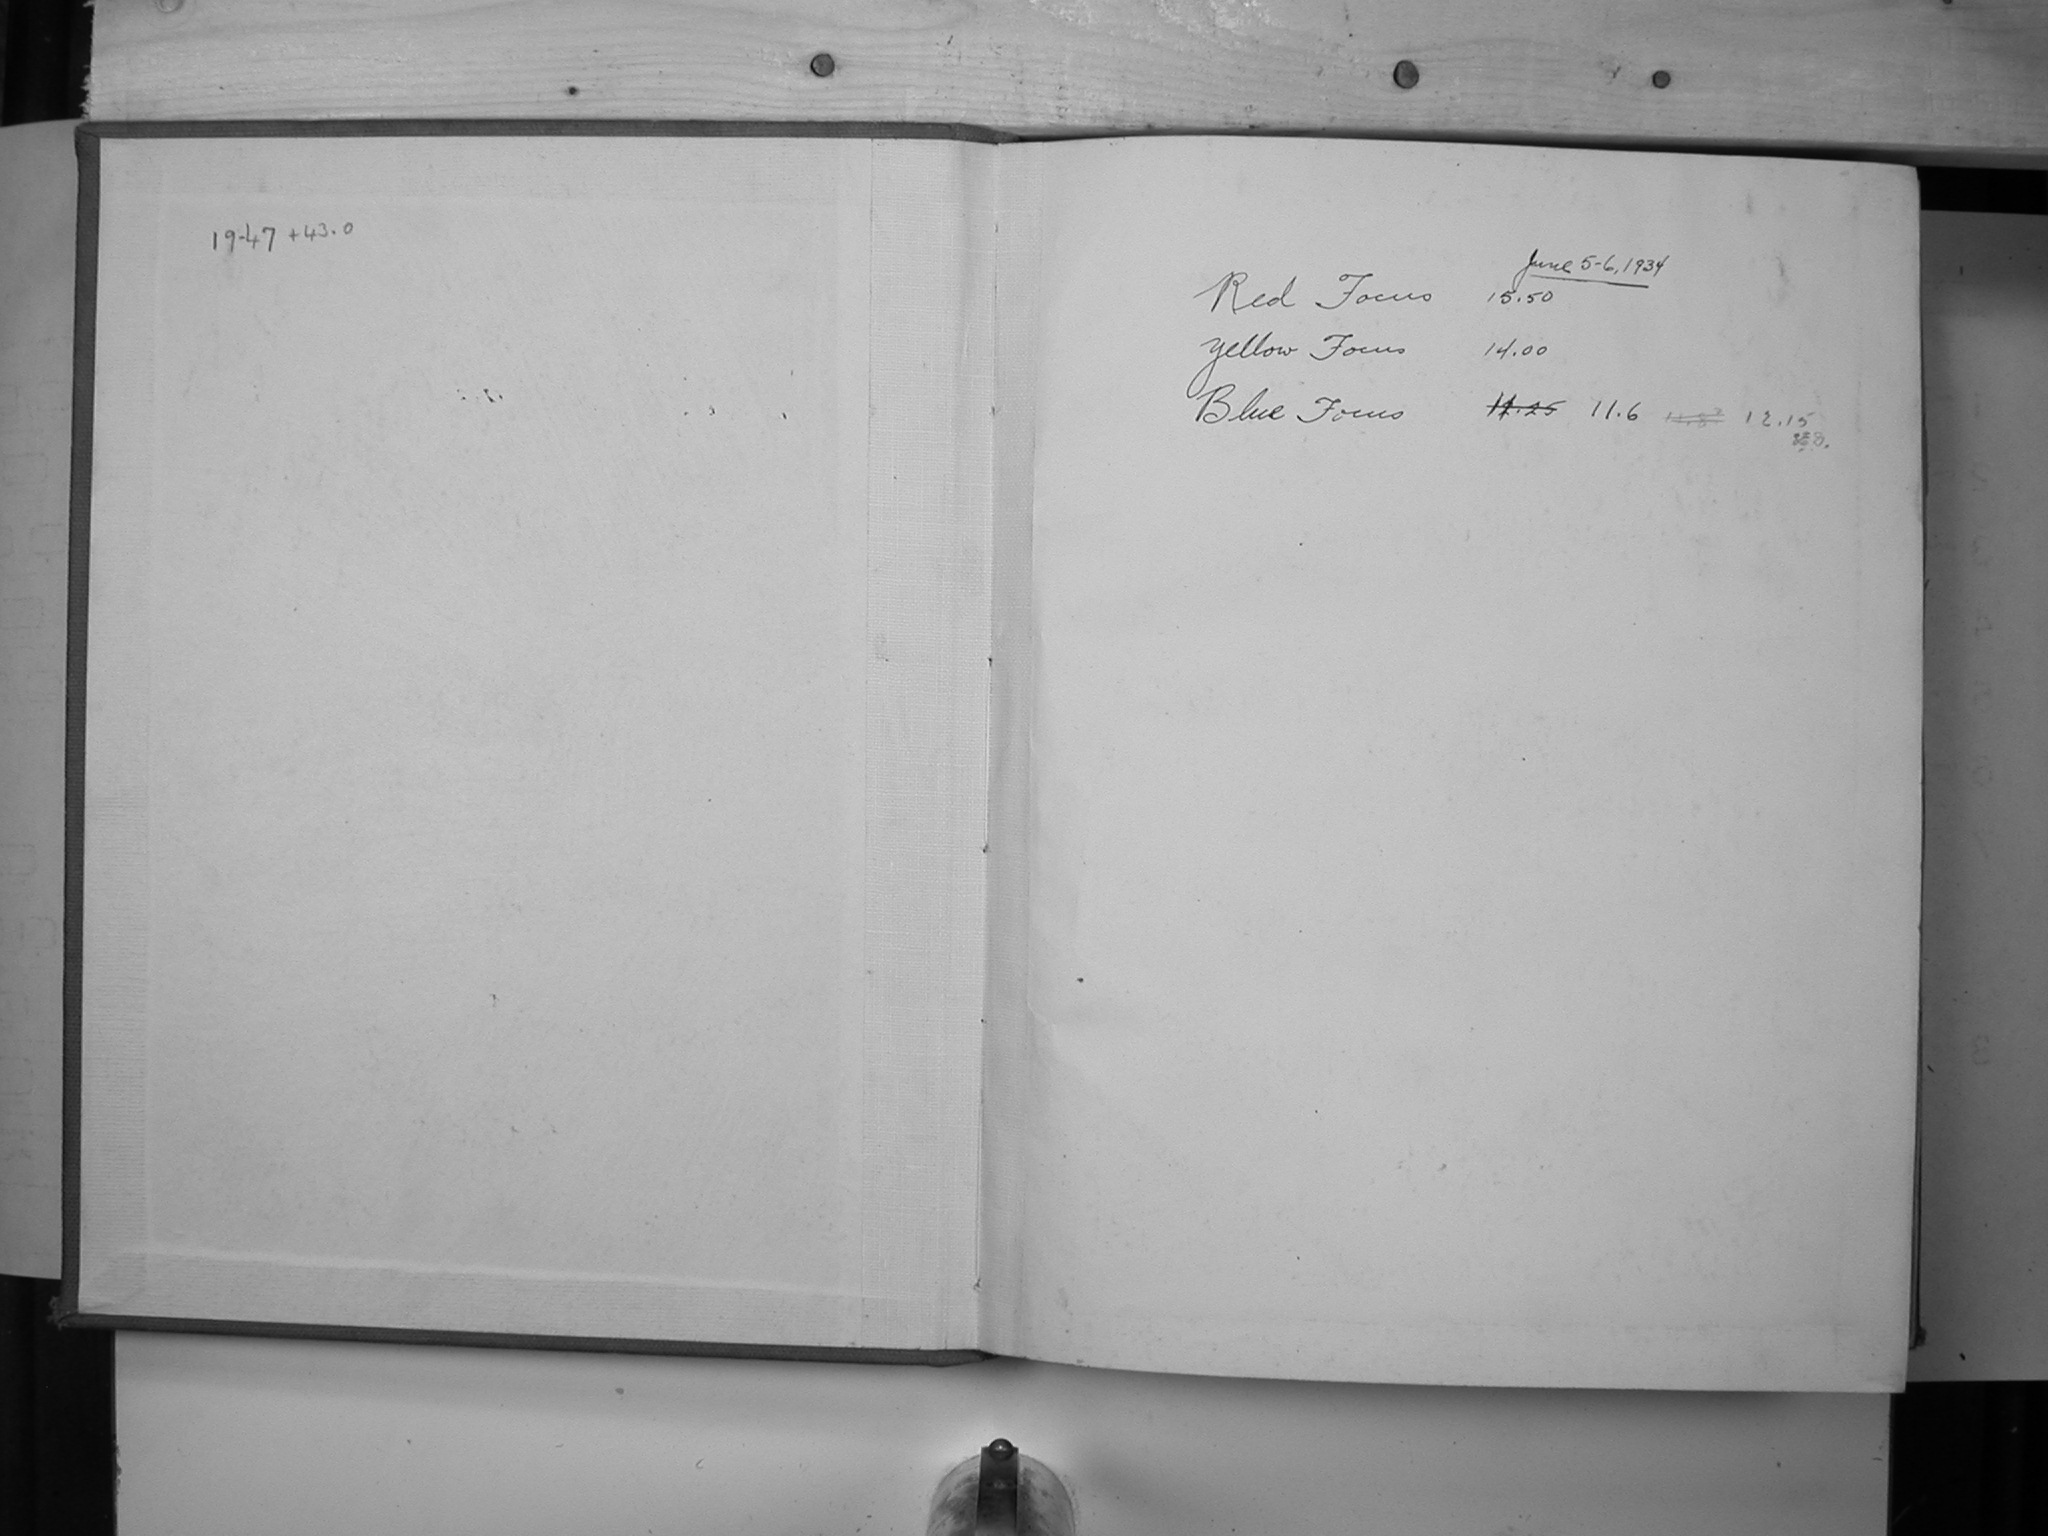 19-47 +43.0
June 5-6, 1934
Red Focus 15.50
Yellow Focus 14.00
Blue Focus 11.25 11.6 12.15